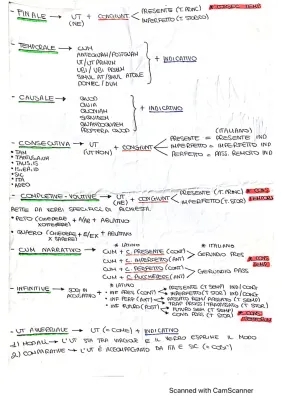 - FINALE → UT + CONGIUNT PRESENTE (T. PRINC)
(NE) IMPERFETTO (T. STORICO)
- TEMPORALE → CUM
ANTEQUAM/POSTQUAM
UT/UT PRIMUM
UBI/UBI PRIMUM + INDICATIVO
SIMUL AT/SIMUL ATQUE
DONEC/DUM
- CAUSALE → QUOD
QUIA
QUONIAM + INDICATIVO
SIQUIDEM
QUANDOQUIDEM
PROPTEREA QUOD
(ITALIANO)
- CONSECUTIVA → UT + CONGIUNT PRESENTE = PRESENTE IND
(UT NON) IMPERFETTO = IMPERFETTO IND
PERFETTO = PASS. REMOTO IND
• TAM
• TALIS, IS
• IS, EA, ID
• SIC
• ITA
• ADEO
- COMPLETIVE-VOLITIVE → UT + CONGIUNT PRESENTE (T. PRINC)
(NE) IMPERFETTO (T. STOR)
RETTE DA VERBI SPECIFICI DI RICHIESTA
• PETO (CHIEDERE + A/AB + ABLATIVO
• QUAERO (CHIEDERE + E/EX + ABLATIVO
X SAPERE)
* LATINO * ITALIANO
- CUM NARRATIVO → CUM + C. PRESENTE (CONT) GERUNDIO PRES
CUM + C. IMPERFETTO (CONT)
CUM + C. PERFETTO (ANT) GERUNDIO PASS
CUM + C. PIUCCHEPERF (ANT)
* LATINO * ITALIANO
- INFINITIVE → SOGG IN • INF PRES (CONT) PRESENTE (T. SEMP) IND/CONG
ACCUSATIVO IMPERFETTO (T. STOR) IND/CONG
• INF PERF (ANT)
• INF FUTURO (POST) FUTURO SEM (T. SEMP)
COND PASS (T. STOR)
- UT AVVERBIALE → UT (= COME) + INDICATIVO
1) MODALI → L'UT STA TRA VIRGOLE E IL VERBO ESPRIME IL MODO
2) COMPARATIVE → L'UT È ACCOMPAGNATO DA ITA E SIC (= COSÌ)
Scanned with CamScanner